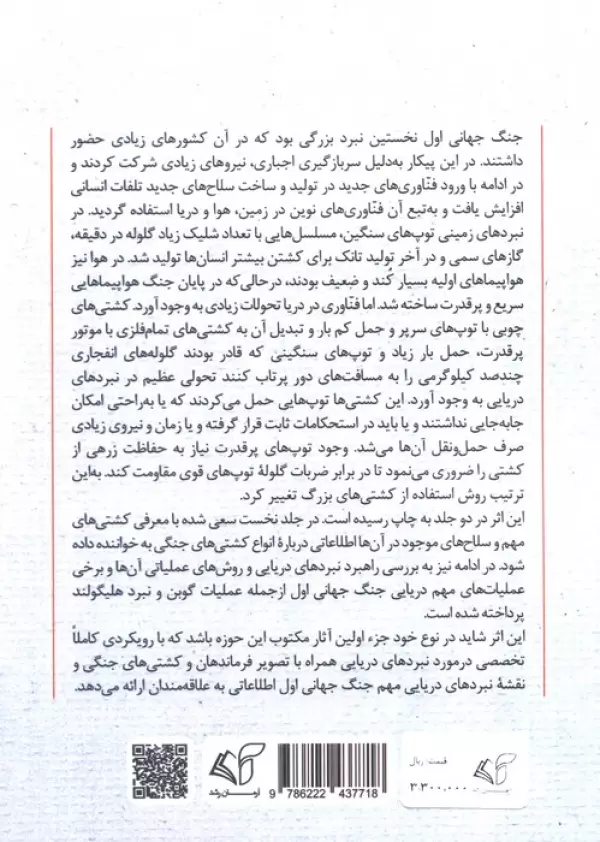 جنگ جهانی اول نخستین نبرد بزرگی بود که در آن کشورهای زیادی حضور
داشتند. در این پیکار به‌دلیل سربازگیری اجباری، نیروهای زیادی شرکت کردند و
در ادامه با ورود فنّاوری‌های جدید در تولید و ساخت سلاح‌های جدید تلفات انسانی
افزایش یافت و به‌تبع آن فنّاوری‌های نوین در زمین، هوا و دریا استفاده گردید. در
نبردهای زمینی توپ‌های سنگین، مسلسل‌هایی با تعداد شلیک زیاد گلوله در دقیقه،
گازهای سمی و در آخر تولید تانک برای کشتن بیشتر انسان‌ها تولید شد. در هوا نیز
هواپیماهای اولیه بسیار کُند و ضعیف بودند، درحالی‌که در پایان جنگ هواپیماهایی
سریع و پرقدرت ساخته شد. اما فنّاوری در دریا تحولات زیادی به وجود آورد. کشتی‌های
چوبی با توپ‌های سرپر و حمل کم بار و تبدیل آن به کشتی‌های تمام‌فلزی با موتور
پرقدرت، حمل بار زیاد و توپ‌های سنگینی که قادر بودند گلوله‌های انفجاری
چندصد کیلوگرمی را به مسافت‌های دور پرتاب کنند تحولی عظیم در نبردهای
دریایی به وجود آورد. این کشتی‌ها توپ‌هایی حمل می‌کردند که یا به‌راحتی امکان
جابه‌جایی نداشتند و یا باید در استحکامات ثابت قرار گرفته و یا زمان و نیروی زیادی
صرف حمل‌ونقل آن‌ها می‌شد. وجود توپ‌های پرقدرت نیاز به حفاظت زرهی از
کشتی را ضروری می‌نمود تا در برابر ضربات گلولهٔ توپ‌های قوی مقاومت کند. به‌این
ترتیب روش استفاده از کشتی‌های بزرگ تغییر کرد.
این اثر در دو جلد به چاپ رسیده است. در جلد نخست سعی شده با معرفی کشتی‌های
مهم و سلاح‌های موجود در آن‌ها اطلاعاتی دربارهٔ انواع کشتی‌های جنگی به خواننده داده
شود. در ادامه نیز به بررسی راهبرد نبردهای دریایی و روش‌های عملیاتی آن‌ها و برخی
عملیات‌های مهم دریایی جنگ جهانی اول ازجمله عملیات گوبن و نبرد هلیگولند
پرداخته شده است.
این اثر شاید در نوع خود جزء اولین آثار مکتوب این حوزه باشد که با رویکردی کاملاً
تخصصی درمورد نبردهای دریایی همراه با تصویر فرماندهان و کشتی‌های جنگی و
نقشهٔ نبردهای دریایی مهم جنگ جهانی اول اطلاعاتی به علاقه‌مندان ارائه می‌دهد.
قیمت: ریال
۳۳۰۰,۰۰۰
آرمان رشد
9 786222 437718